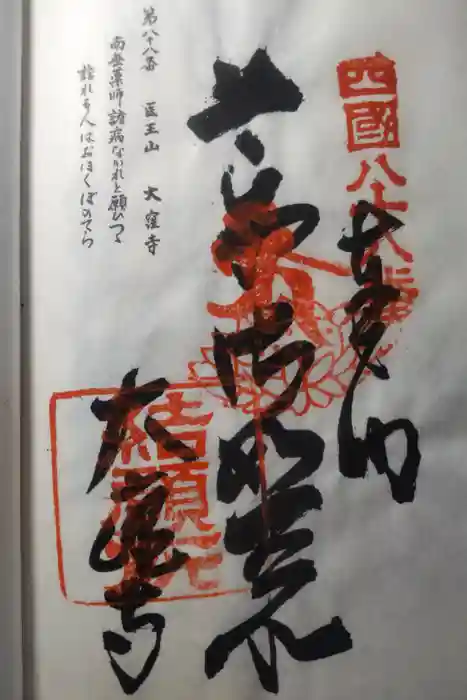 四國八十八番
奉納
如来
結願所
大窪寺
第八十八番 医王山 大窪寺
南無薬師諸病なかれと願ひつゝ
詣れる人はおほくぼのてら